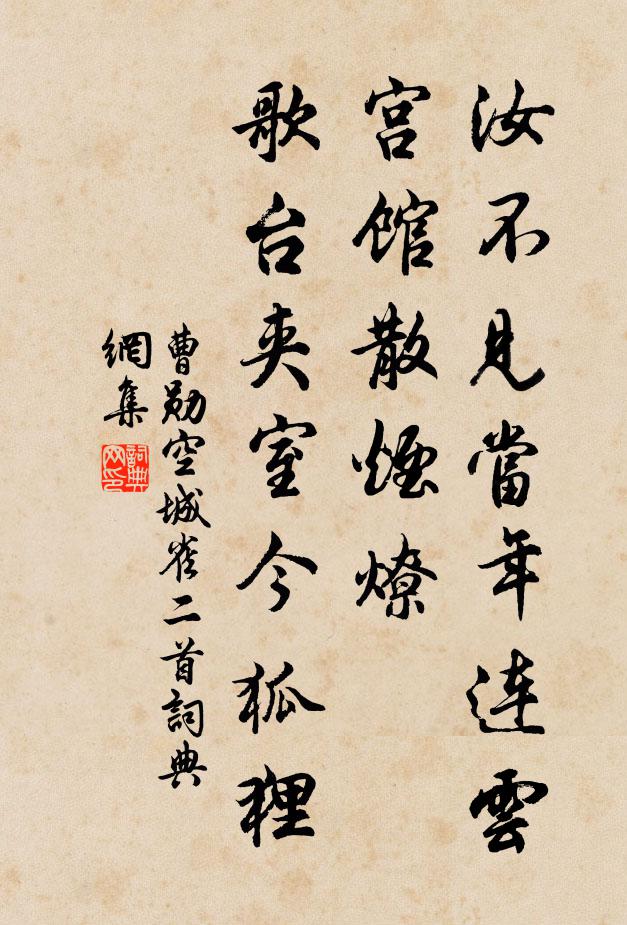 汝不見當年連雲
宮館散煙燎
歌台夾室今狐狸
曹勛空城雀二首詞典
網集
詞典網印